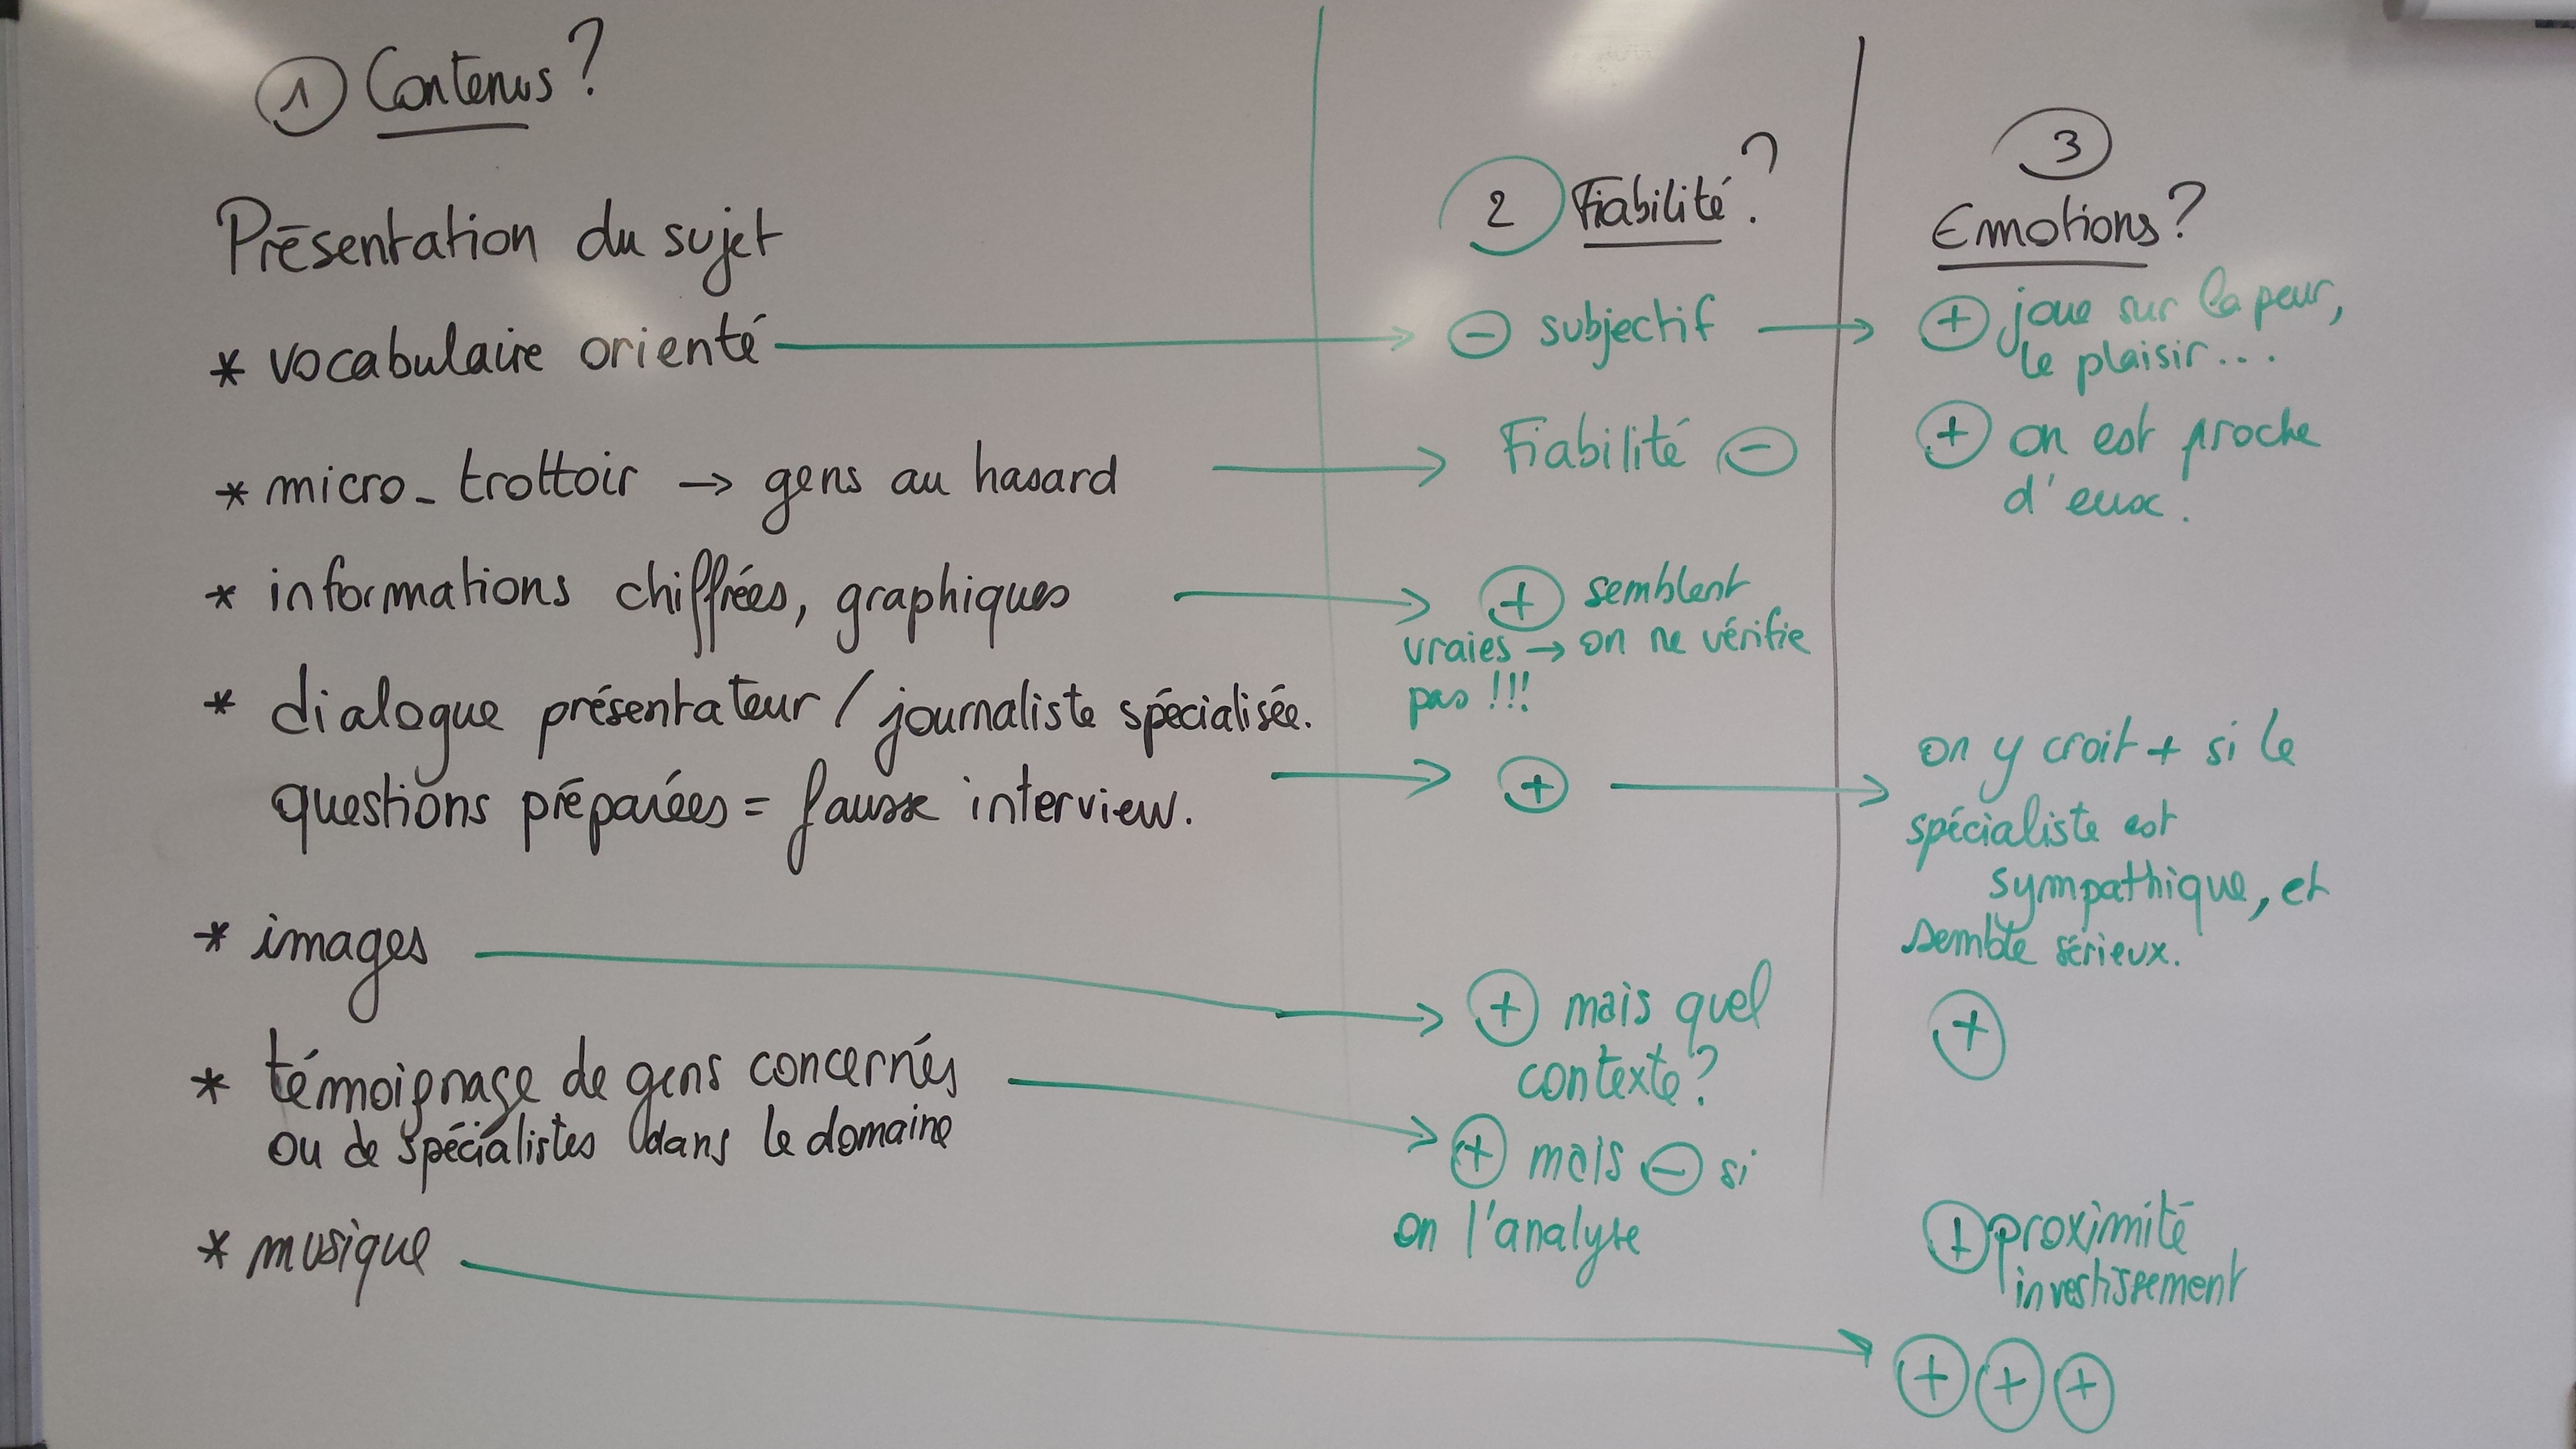 ① Contenus ?
Présentation du sujet
* vocabulaire orienté →
* micro-trottoir → gens au hasard →
* informations chiffrées, graphiques →
* dialogue présentateur / journaliste spécialisée.
questions préparées = fausse interview. →
* images →
* témoignage de gens concernés →
ou de spécialistes dans le domaine
* musique →
② Fiabilité ?
⊖ subjectif →
Fiabilité ⊖
⊕ semblent
vraies → on ne vérifie
pas !!!
⊕ →
⊕ mais quel
contexte ?
⊕ mais ⊖ si
on l'analyse
③
Emotions ?
⊕ joue sur la peur,
le plaisir...
⊕ on est proche
d'eux.
on y croit + si le
spécialiste est
sympathique, et
semble sérieux.
⊕
⊕ proximité
investissement
⊕ ⊕ ⊕